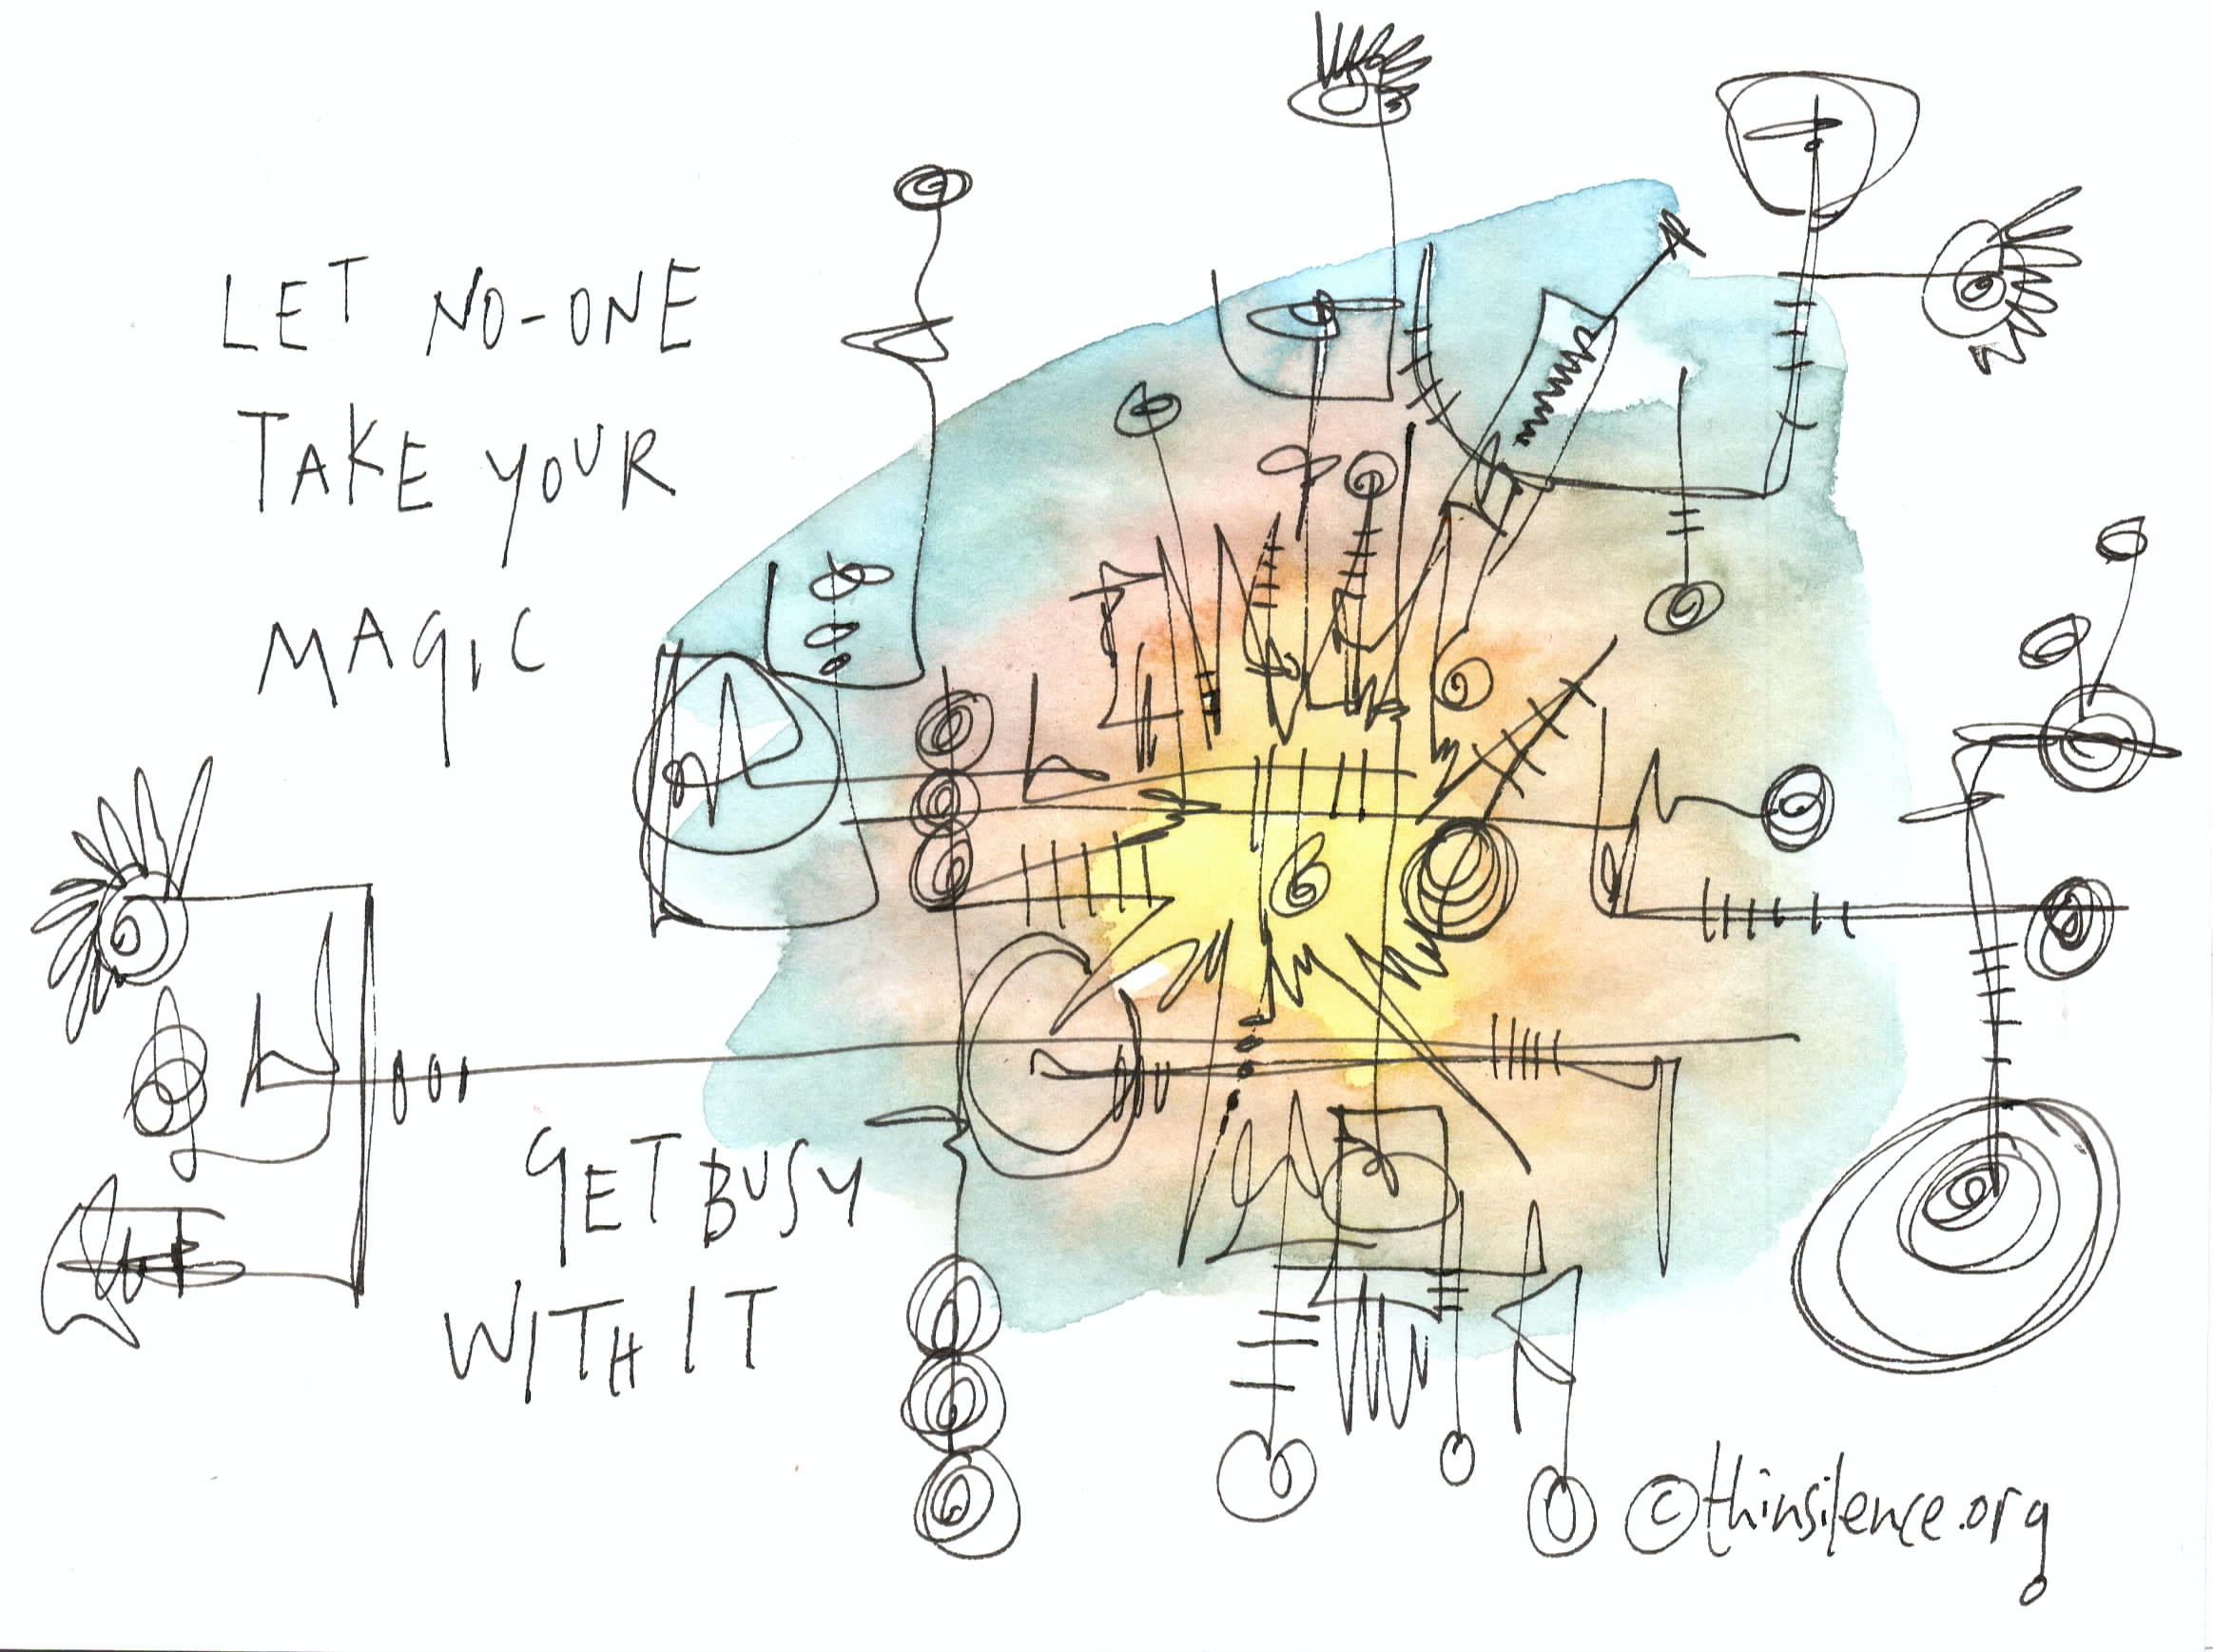 LET NO-ONE
TAKE YOUR
MAGIC
GET BUSY
WITH IT
©thinsilence.org